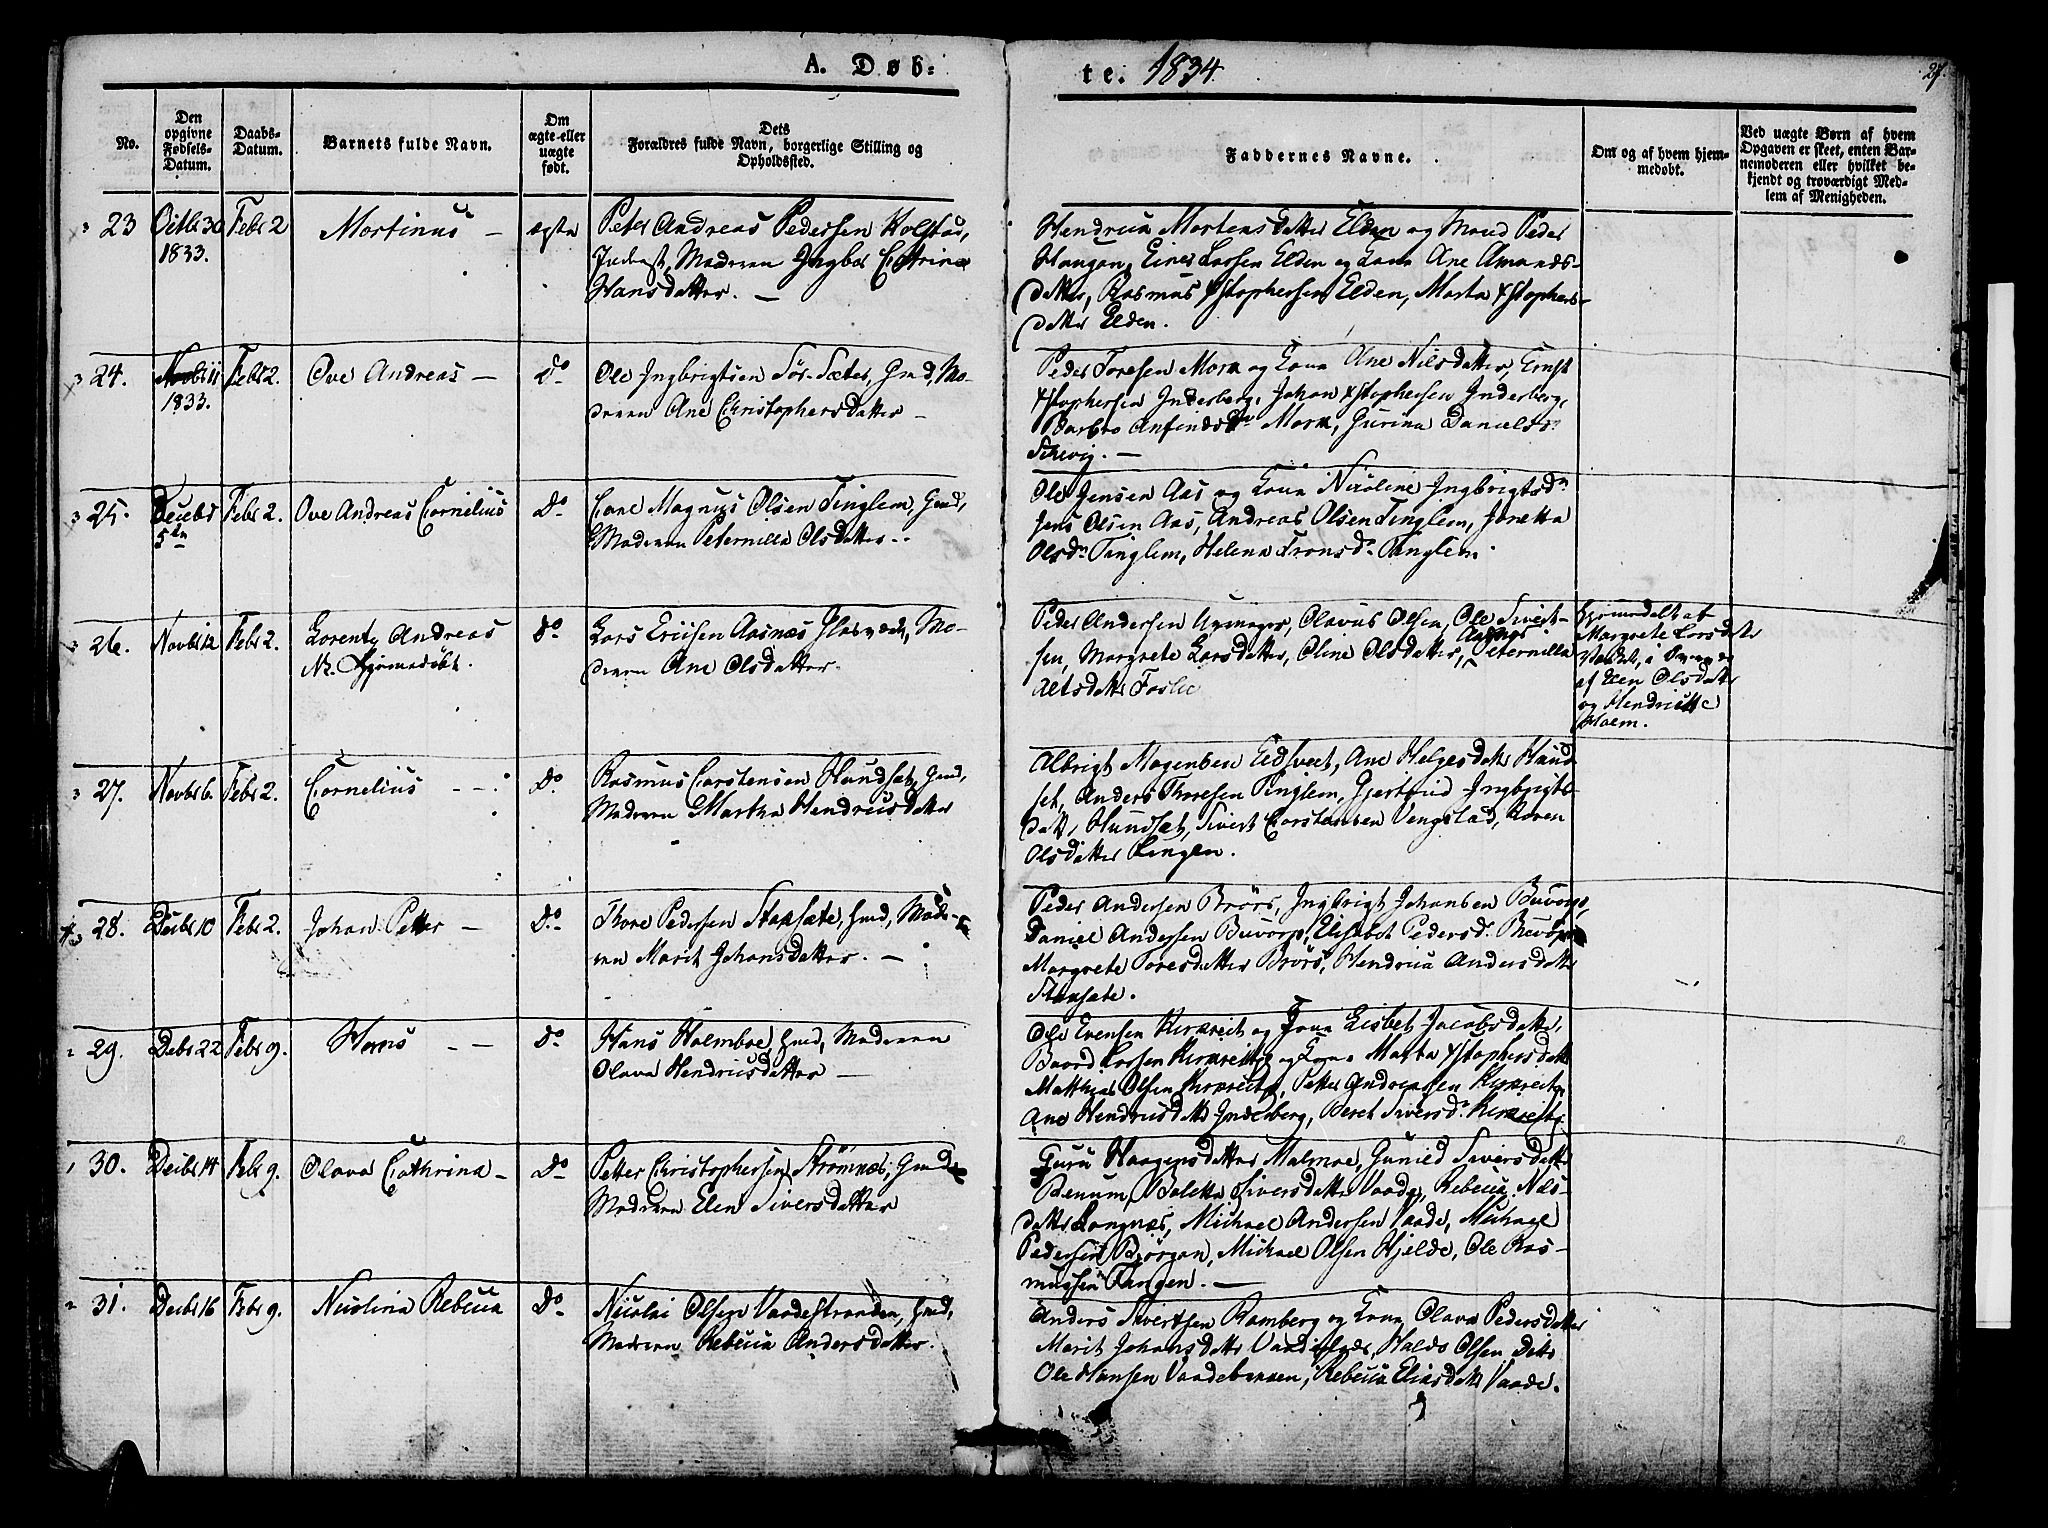 A. Døb-
te. 1834
27.
No.
Den
opgivne
Fødsels-
Datum.
Daabs-
Datum.
Barnets fulde Navn.
Om
ægte eller
uægte
født.
Dets
Forældres fulde Navn, borgerlige Stilling og
Opholdssted.
Faddernes Navne.
Om og af hvem hjem-
medøbt.
Ved uægte Børn af hvem
Opgaven er skeet, enten Bar-
nemoderen eller hvilket be-
kjendt og troværdigt Med-
lem af Menigheden.
23
Octbr 30
1833.
Febr 2
Mortinus -
ægte
Peter Andreas Pedersen Holstad,
Moderen Ingbor Catrina
Hansdatter. -
Hendrica Mortensdatter Elden og Mand Peder
Haugan, Einer Larsen Elden og Kone Ane Amunds-
datter, Rasmus Xstophersen Elden, Marta Xstophers-
datter Elden.
24.
Novbr 11
1833.
Febr 2.
Ove Andreas -
Do
Ole Ingbrigtsen Sør-Sæter, Gmd, Mo-
deren Ane Christophersdatter -
Peder Toresen Mork og Kone Ane Nilsdatter, Ernst
Xstophersen Inderberg, Johan Xstophersen Inderberg,
Barbro Anfindsdr Mork, Gurina Danielsdr
25.
Decebr
5te
Febr 2.
Ove Andreas Cornelius
Do
Cane Magnus Olsen Tinglem, Gmd,
Moderen Peternilla Olsdatter -
Ole Jensen Aas og Kone Nicoline Ingbrigtsdr
Jens Olsen Aas, Andreas Olsen Tinglem, Jonetta
Olsdr Tinglem, Helena Tronsdr Tinglem.
26.
Novbr 12
Febr 2.
Lorentz Andreas
Nb. hjemmedøbt.
Do
Lars Ericsen Aasnæs, Mo-
deren Ane Olsdatter.
Peder Andersen Olavus Olsen, Ole Sivert-
sen, Aasnæs
Margrete Larsdatter, Oline Olsdatter, Peternilla
Hjemmedøbt af
Margrete Larsdatter
af Elen Olsdatter
og Hendricke
Holm.
27.
Novbr 6.
Febr 2.
Cornelius - -
Do
Rasmus Carstensen Hundset, Gmd,
Moderen Martha Hendricsdatter
Albrigt Mogensen Eidsvet, Ane Helgesdatter Hund-
set, Anders Thoresen Tinglem, Gjertrud Ingbrigts-
datt, Hundset, Sivert Carstensen Vengstad, Karen
Olsdatter Lingen.
28.
Decbr 10
Febr 2.
Johan Petter -
Do
Thore Pedersen Staxsæte, Gmd, Mode-
ren Marit Johansdatter. -
Peder Andersen Brørs, Ingbrigt Johansen Buvorp,
Daniel Andersen Buvorp, Elisabet Pedersdr Buvorp
Margrete Toresdatter Brørs, Hendrica Andersdatter
Staxsæte.
29.
Debr 22
Febr 9.
Hans - -
Do
Hans Holmboe, Gmd, Moderen
Olava Hendricsdatter -
Ole Evensen Kirkreit og Kone Lisbet Jacobsdatter,
Baard Larsen Kirkreit og Kone Marta Xstophersdatt
Matthias Olsen Kirkreit, Petter Andreasen Kirkreit,
Ane Hendricsdatt Inderberg, Beret Siversdr Kirkreit
30.
Decbr 14
Febr 9.
Olava Cathrina -
Do
Petter Christophersen Strømnæs, Gmd
Moderen Elen Siversdatter
Guru Haagensdatter Malmoe, Gunild Siversdatter
Benum, Boletta Siversdatter Vaade, Rebecca Nils-
datter Langnæs, Michael Andersen Vaade, Michael
Pedersen Bjørgan, Michael Olsen Hjelde, Ole Ras-
mussen Tangen. -
31.
Decbr 16
Febr 9.
Nicolina Rebecca
Do
Nicolai Olsen Vaadestranden, Gmd,
Moderen Rebecca Andersdatter.
Anders Sivertsen Ramberg og Kone Olava Pedersdatter
Marit Johansdatter Olsen Ditto
Ole Hansen Rebecca Eliasdatt Vaade.